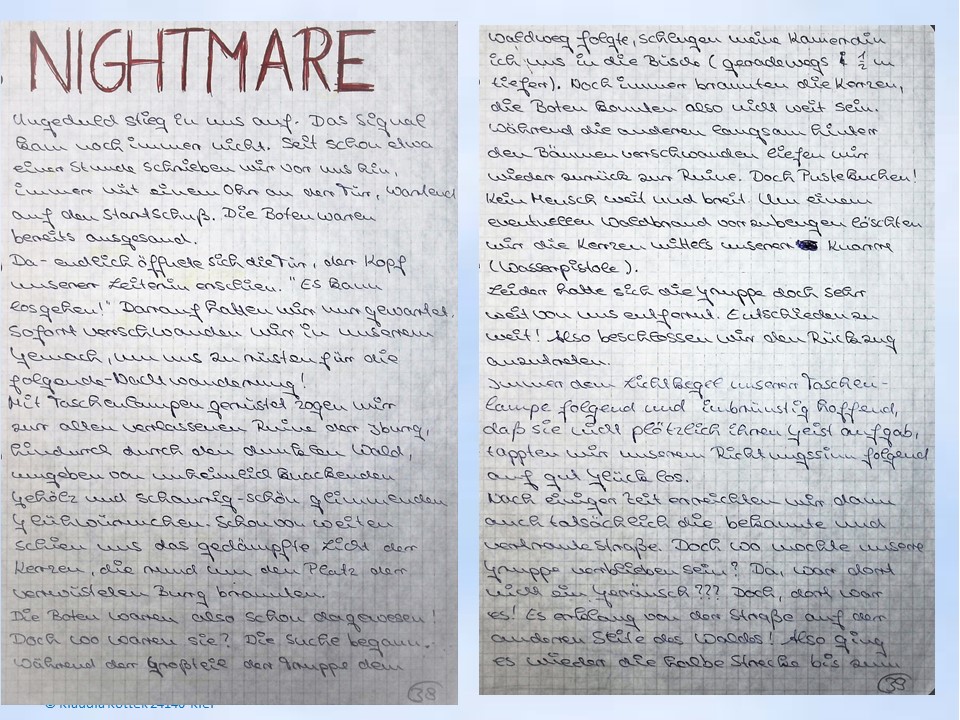 NIGHTMARE
Ungeduld stieg in uns auf. Das Signal
kam noch immer nicht. Seit schon etwa
einer Stunde schrieben wir vor uns hin,
immer mit einem Ohr an der Tür, wartend
auf den Startschuß. Die Boten waren
bereits ausgesand.
Da - endlich öffnete sich die Tür, der Kopf
unserer Leiterin erschien. "Es kann
losgehen!" Darauf hatten wir nur gewartet.
Sofort verschwanden wir in unserem
Gemach, um uns zu rüsten für die
folgende Nachtwanderung!
Mit Taschenlampen gerüstet zogen wir
zur alten verlassenen Ruine der Iburg,
hindurch durch den dunklen Wald,
umgeben von unheimlich knackenden
Gehölz und schaurig-schön glimmenden
Glühwürmchen. Schon von weiten
schien uns das gedämpfte Licht der
Kerzen, die rund um den Platz der
verwüsteten Burg brannten.
Die Boten waren also schon dagewesen!
Doch wo waren sie? Die Suche begann.
Während der Großteil der Gruppe dem
38
Waldweg folgte, schlugen meine Kameradin
ich uns in die Büsche (geradewegs 1 1/2 m
tiefer). Doch immer brannten die Kerzen,
die Boten konnten also nicht weit sein.
Während die anderen langsam hinter
den Bäumen verschwanden liefen wir
wieder zurück zur Ruine. Doch Pustekuchen!
Kein Mensch weit und breit. Um einem
eventuellen Waldbrand vorzubeugen löschten
wir die Kerzen mittels unserer Knarre
(Wasserpistole).
Leider hatte sich die Gruppe doch sehr
weit von uns entfernt. Entschieden zu
weit! Also beschlossen wir den Rückzug
anzutreten.
Immer dem Lichtkegel unserer Taschen-
lampe folgend und inbrünstig hoffend,
daß sie nicht plötzlich ihren Geist aufgab,
tappten wir unserem Richtungssinn folgend
auf gut Glück los.
Nach einiger Zeit erreichten wir dann
auch tatsächlich die bekannte und
vertraute Straße. Doch wo mochte unsere
Gruppe verblieben sein? Da, war dort
nicht ein Geräusch??? Doch, dort war
es! Es erklang von der Straße auf der
anderen Seite des Waldes! Also ging
es wieder die halbe Strecke bis zum
39
© Klaudia Kottek 24146 Kiel